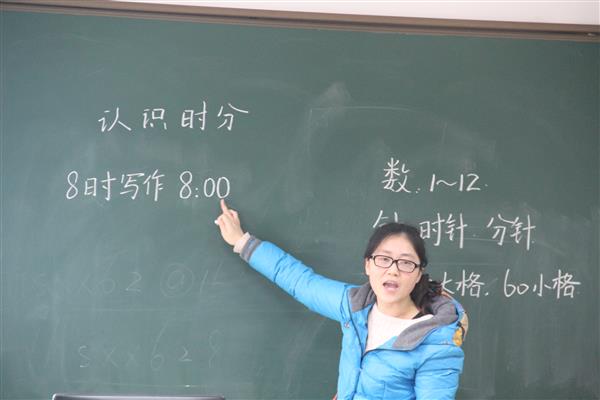 认识时分
8时写作 8:00
数:1~12.
时针 分针
大格. 60小格